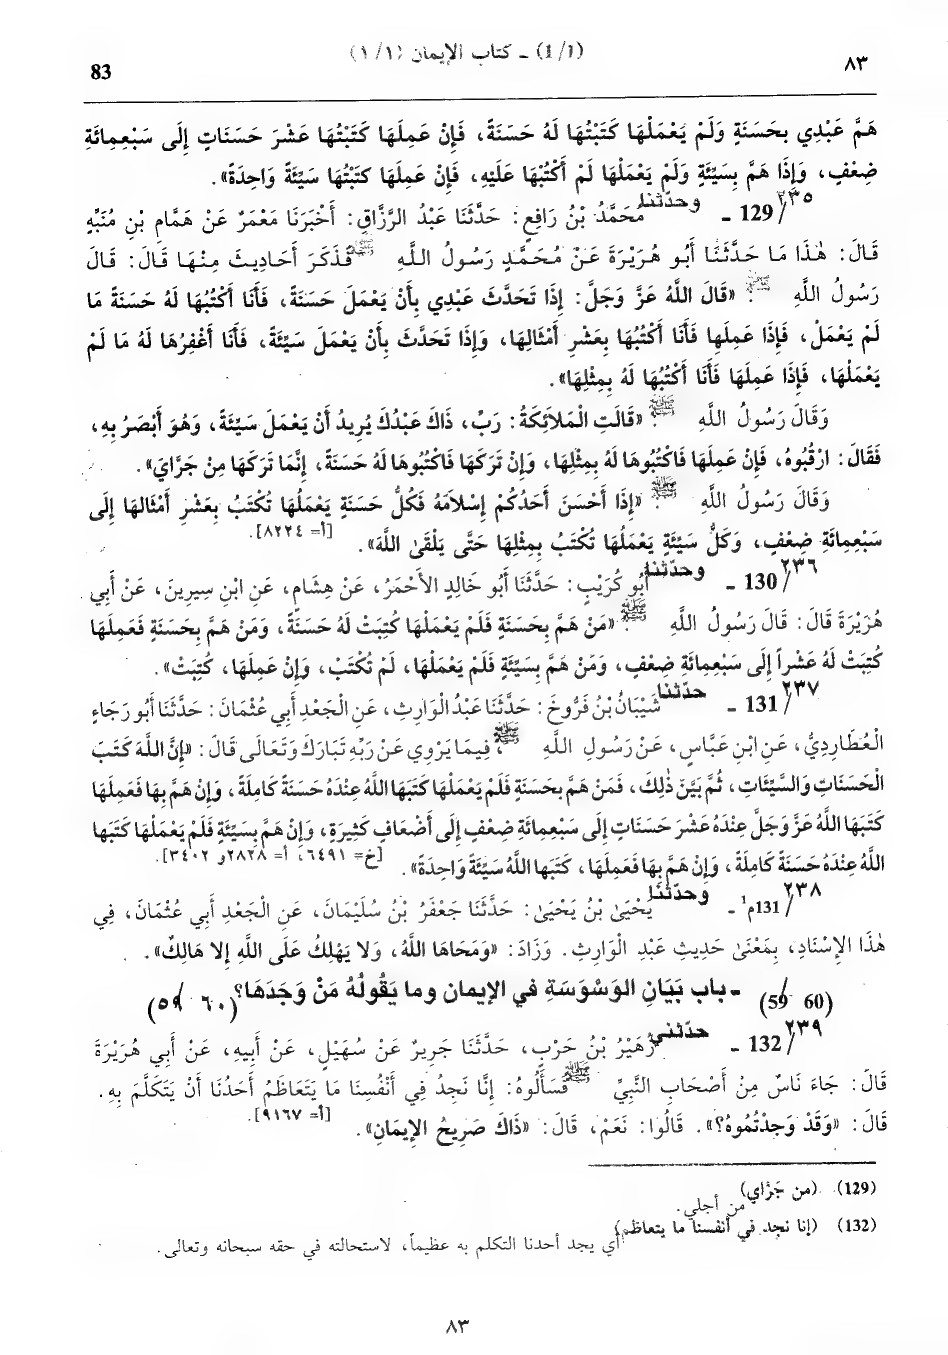 ٨٣ (1/ 4) ـ كتاب الإيمان (١/ ١) 83
هَمَّ عَبْدِي بِحَسَنَةٍ وَلَمْ يَعْمَلْهَا كَتَبْتُهَا لَهُ حَسَنَةً، فَإِنْ عَمِلَهَا كَتَبْتُهَا عَشْرَ حَسَنَاتٍ إِلَى سَبْعِمِائَةِ
ضِعْفٍ، وَإِذَا هَمَّ بِسَيِّئَةٍ وَلَمْ يَعْمَلْهَا لَمْ أَكْتُبْهَا عَلَيْهِ، فَإِنْ عَمِلَهَا كَتَبْتُهَا سَيِّئَةً وَاحِدَةً».
٢٣٥/ 129 ـ وحدّثنا مُحَمَّدُ بْنُ رَافِعٍ: حَدَّثَنَا عَبْدُ الرَّزَّاقِ: أَخْبَرَنَا مَعْمَرٌ عَنْ هَمَّامِ بْنِ مُنَبِّهٍ
قَالَ: هٰذَا مَا حَدَّثَنَا أَبُو هُرَيْرَةَ عَنْ مُحَمَّدٍ رَسُولُ اللَّهِ ﷺ فَذَكَرَ أَحَادِيثَ مِنْهَا قَالَ: قَالَ
رَسُولُ اللَّهِ ﷺ: «قَالَ اللَّهُ عَزَّ وَجَلَّ: إِذَا تَحَدَّثَ عَبْدِي بِأَنْ يَعْمَلَ حَسَنَةً، فَأَنَا أَكْتُبُهَا لَهُ حَسَنَةً مَا
لَمْ يَعْمَلْ، فَإِذَا عَمِلَهَا فَأَنَا أَكْتُبُهَا بِعَشْرِ أَمْثَالِهَا، وَإِذَا تَحَدَّثَ بِأَنْ يَعْمَلَ سَيِّئَةً، فَأَنَا أَغْفِرُهَا لَهُ مَا لَمْ
يَعْمَلْهَا، فَإِذَا عَمِلَهَا فَأَنَا أَكْتُبُهَا لَهُ بِمِثْلِهَا».
وَقَالَ رَسُولُ اللَّهِ ﷺ: «قَالَتِ الْمَلَائِكَةُ: رَبِّ، ذَاكَ عَبْدُكَ يُرِيدُ أَنْ يَعْمَلَ سَيِّئَةً، وَهُوَ أَبْصَرُ بِهِ،
فَقَالَ: ارْقُبُوهُ، فَإِنْ عَمِلَهَا فَاكْتُبُوهَا لَهُ بِمِثْلِهَا، وَإِنْ تَرَكَهَا فَاكْتُبُوهَا لَهُ حَسَنَةً، إِنَّمَا تَرَكَهَا مِنْ جَرَّايَ».
وَقَالَ رَسُولُ اللَّهِ ﷺ: «إِذَا أَحْسَنَ أَحَدُكُمْ إِسْلَامَهُ فَكُلُّ حَسَنَةٍ يَعْمَلُهَا تُكْتَبُ بِعَشْرِ أَمْثَالِهَا إِلَى
سَبْعِمِائَةِ ضِعْفٍ، وَكُلُّ سَيِّئَةٍ يَعْمَلُهَا تُكْتَبُ بِمِثْلِهَا حَتَّى يَلْقَىٰ اللَّهَ». [أ= ٨٢٢٤].
٢٣٦/ 130 ـ وحدّثنا أَبُو كُرَيْبٍ: حَدَّثَنَا أَبُو خَالِدٍ الأَحْمَرُ، عَنْ هِشَامٍ، عَنِ ابْنِ سِيرِينَ، عَنْ أَبِي
هُرَيْرَةَ قَالَ: قَالَ رَسُولُ اللَّهِ ﷺ: «مَنْ هَمَّ بِحَسَنَةٍ فَلَمْ يَعْمَلْهَا كُتِبَتْ لَهُ حَسَنَةً، وَمَنْ هَمَّ بِحَسَنَةٍ فَعَمِلَهَا
كُتِبَتْ لَهُ عَشْراً إِلَى سَبْعِمِائَةِ ضِعْفٍ، وَمَنْ هَمَّ بِسَيِّئَةٍ فَلَمْ يَعْمَلْهَا، لَمْ تُكْتَبْ، وَإِنْ عَمِلَهَا، كُتِبَتْ».
٢٣٧/ 131 ـ حدّثنا شَيْبَانُ بْنُ فَرُّوخَ: حَدَّثَنَا عَبْدُ الْوَارِثِ، عَنِ الْجَعْدِ أَبِي عُثْمَانَ: حَدَّثَنَا أَبُو رَجَاءٍ
الْعُطَارِدِيُّ، عَنِ ابْنِ عَبَّاسٍ، عَنْ رَسُولِ اللَّهِ ﷺ، فِيمَا يَرْوِي عَنْ رَبِّهِ تَبَارَكَ وَتَعَالَى قَالَ: «إِنَّ اللَّهَ كَتَبَ
الْحَسَنَاتِ وَالسَّيِّئَاتِ، ثُمَّ بَيَّنَ ذٰلِكَ، فَمَنْ هَمَّ بِحَسَنَةٍ فَلَمْ يَعْمَلْهَا كَتَبَهَا اللَّهُ عِنْدَهُ حَسَنَةً كَامِلَةً، وَإِنْ هَمَّ بِهَا فَعَمِلَهَا
كَتَبَهَا اللَّهُ عَزَّ وَجَلَّ عِنْدَهُ عَشْرَ حَسَنَاتٍ إِلَى سَبْعِمِائَةِ ضِعْفٍ إِلَى أَضْعَافٍ كَثِيرَةٍ، وَإِنْ هَمَّ بِسَيِّئَةٍ فَلَمْ يَعْمَلْهَا كَتَبَهَا
اللَّهُ عِنْدَهُ حَسَنَةً كَامِلَةً، وَإِنْ هَمَّ بِهَا فَعَمِلَهَا، كَتَبَهَا اللَّهُ سَيِّئَةً وَاحِدَةً». [خ= ٦٤٩١، أ= ٢٨٢٨و ٣٤٠٢].
٢٣٨/ 131م¹ ـ وحدّثنا يَحْيَىٰ بْنُ يَحْيَىٰ: حَدَّثَنَا جَعْفَرُ بْنُ سُلَيْمَانَ، عَنِ الْجَعْدِ أَبِي عُثْمَانَ، فِي
هٰذَا الإِسْنَادِ، بِمَعْنَىٰ حَدِيثِ عَبْدِ الْوَارِثِ. وَزَادَ: «وَمَحَاهَا اللَّهُ، وَلا يَهْلِكُ عَلَى اللَّهِ إِلا هَالِكٌ».
(60/ 59) ـ باب بَيَانِ الوَسْوَسَةِ في الإيمان وما يَقُولُهُ مَنْ وَجَدَهَا؟ (٦٠/ ٥٩)
٢٣٩/ 132 ـ حدّثني زُهَيْرُ بْنُ حَرْبٍ، حَدَّثَنَا جَرِيرٌ عَنْ سُهَيْلٍ، عَنْ أَبِيهِ، عَنْ أَبِي هُرَيْرَةَ
قَالَ: جَاءَ نَاسٌ مِنْ أَصْحَابِ النَّبِيِّ ﷺ فَسَأَلُوهُ: إِنَّا نَجِدُ فِي أَنْفُسِنَا مَا يَتَعَاظَمُ أَحَدُنَا أَنْ يَتَكَلَّمَ بِهِ.
قَالَ: «وَقَدْ وَجَدْتُمُوهُ؟». قَالُوا: نَعَمْ، قَالَ: «ذَاكَ صَرِيحُ الإِيمَانِ». [أ= ٩١٦٧].
(129) (من جَرَّاي) من أجلي.
(132) (إنا نجد في أنفسنا ما يتعاظم) أي يجد أحدنا التكلم به عظيماً، لاستحالته في حقه سبحانه وتعالى.
٨٣